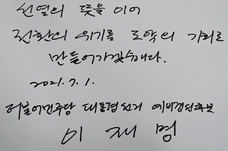 선열의 뜻을 이어
전환의 위기를 도약의 기회로
만들어가겠습니다.
2021. 7. 1.
더불어민주당 대통령선거 예비경선후보
이 재 명